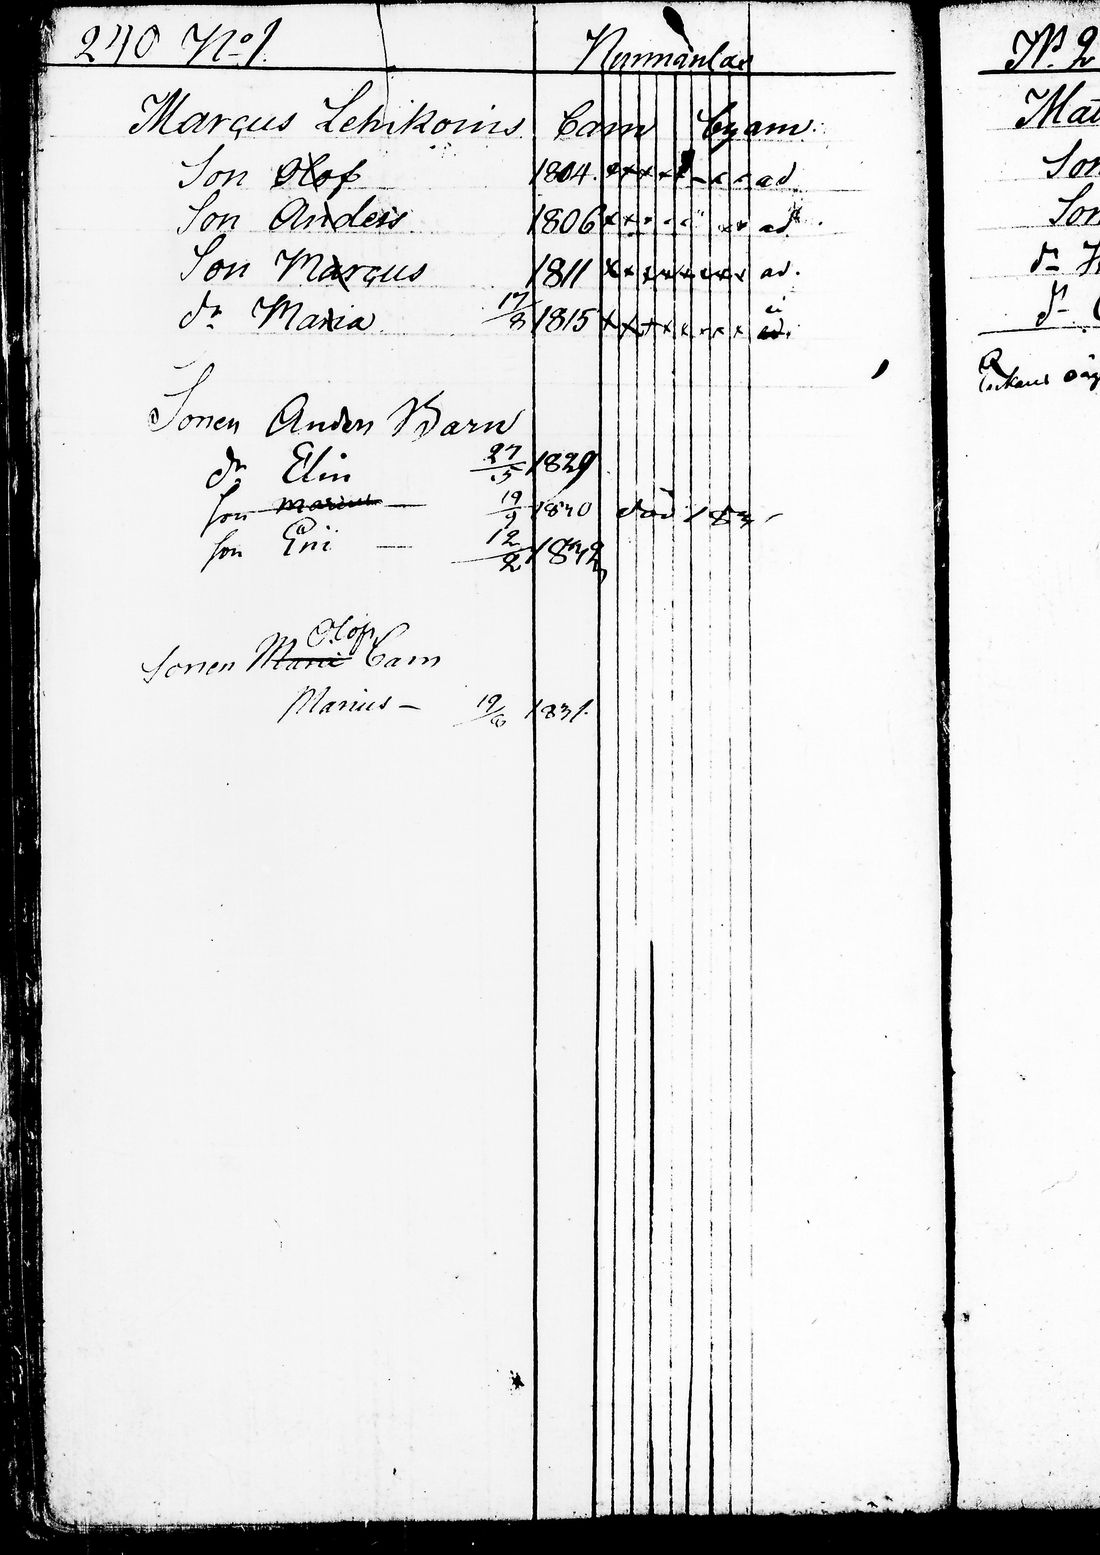 240 No 1. Nurmänlax
Marcus Lehikoins Barn Byam.
Son Olof 1804. x x x x - - - ad
Son Anders 1806 x x - - - x x ad
Son Marcus 1811 x x x x x x x x ad.
dr Maria 17/8 1815 x x x x x - x x ad.
Sonen Anders Barn
dr Elin 27/5 1829
son Marcus — 19/9 1830 död 183
son Eric — 12/2 1832
Olof
Sonen Marci Barn
Marius — 19/6 1831.
N. 2
Mat
Son
Son
dr
dr